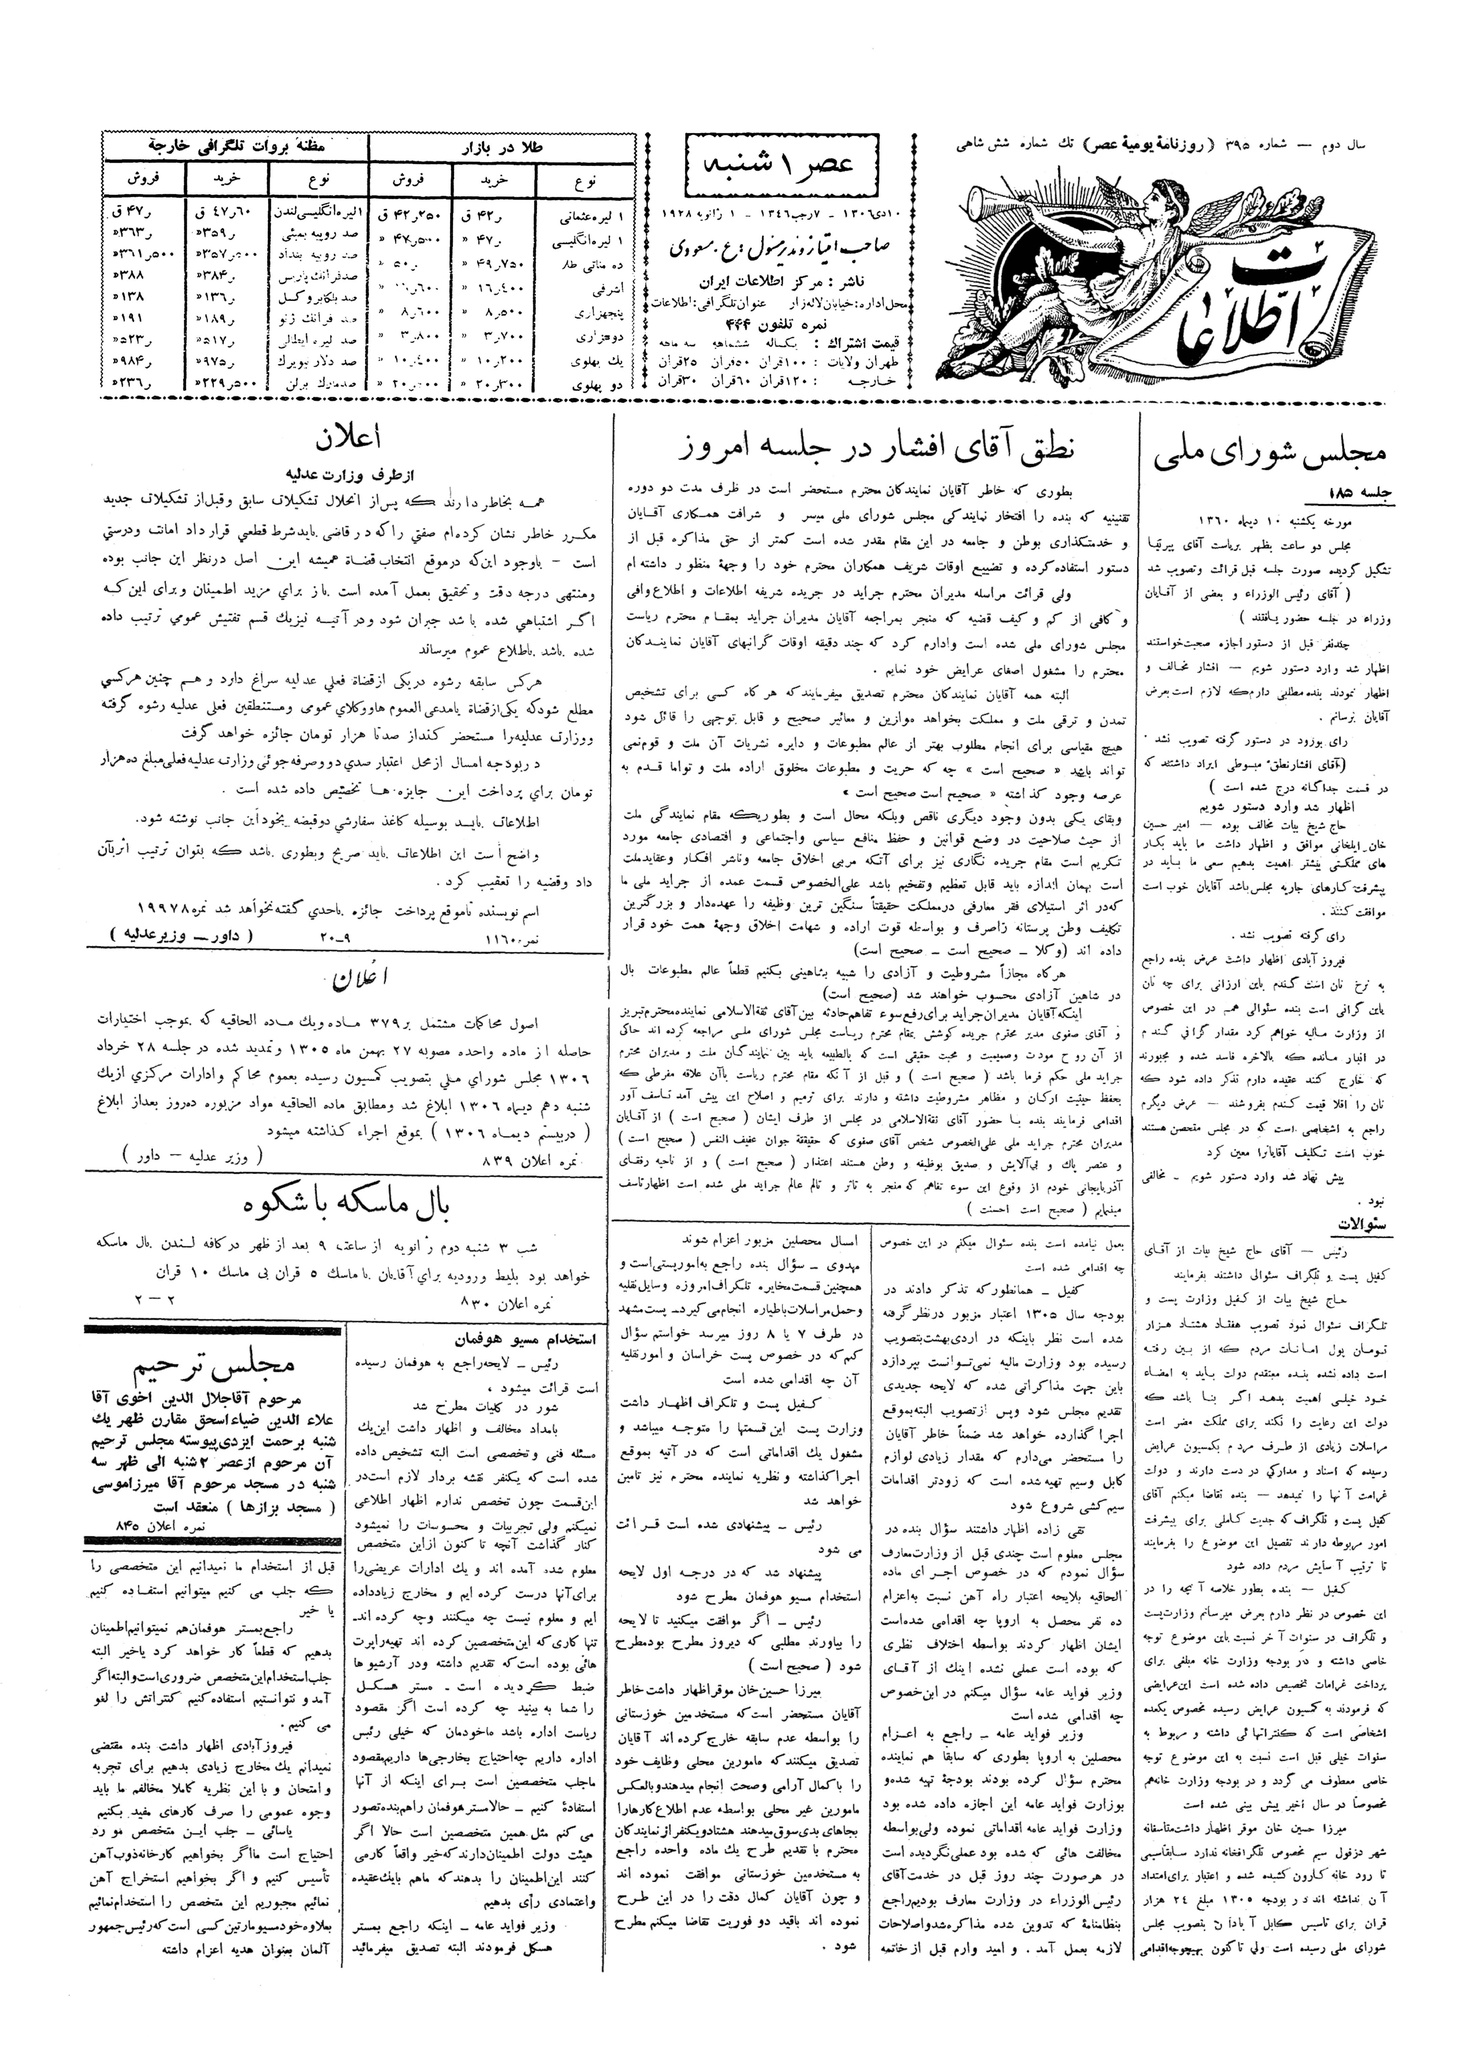 سال دوم — شماره ۳۹۵ (روزنامهٔ یومیهٔ عصر) تك شماره شش شاهی
اطلاعات
عصر ۱ شنبه
۱۰دی۱۳۰۶ - ۷رجب۱۳۴۶ - ۱ ژانویه ۱۹۲۸
صاحب امتیاز و مدیر مسئول : ع . مسعودی
ناشر : مركز اطلاعات ایران
محل اداره: خیابان لاله‌زار عنوان تلگرافی: اطلاعات
نمره تلفون ۴۴۴
قیمت اشتراك : یكساله ششماهه سه ماهه
طهران ولایات : ۱۰۰قران ۵۰قران ۲۵قران
خارجه : ۱۲۰قران ۶۰قران ۳۰قران
طلا در بازار
نوع خرید فروش
۱ لیره عثمانی ر۴۲ ق ۲۵۰ر۴۲ ق
۱ لیره انگلیسی ر۴۷ « ۵۰۰ر۴۷ «
ده مناتی طلا ۷۵۰ر۴۹ « ر۵۰ «
اشرفی ۴۰۰ر۱۶ «
پنجهزاری ۵۰۰ر۸ « ۶۰۰ر۸ «
دوهزاری ۷۰۰ر۳ « ۸۰۰ر۳ «
یك پهلوی ۲۰۰ر۱۰ « ۴۰۰ر۱۰ «
دو پهلوی ۳۰۰ر۲۰ «
مظنه بروات تلگرافی خارجة
نوع خرید فروش
۱لیره‌انگلیسی‌لندن ۶۰ر۴۷ ق ر۴۷ ق
صد روپیه بمبئی ر۳۵۹« ر۳۶۳«
صد روپیه بغداد ر۳۵۷« ۵۰۰ر۳۶۱«
صدفرانك پاریس ر۳۸۴« ر۳۸۸«
صد بلكابروكسل ر۱۳۶« ۱۳۸«
صد فرانك ژنو ر۱۸۹« ۱۹۱«
صد لیره ایطالی ر۵۱۷« ر۵۲۳«
صد دلار نیویرك ر۹۷۵« ر۹۸۴«
صدمارك برلن ۵۰۰ر۲۲۹« ر۲۳۶«
مجلس شورای ملی
جلسه ۱۸۵
مورخه یكشنبه ۱۰ دیماه ۱۳۶۰
مجلس دو ساعت بظهر بریاست آقای پیرنیا
تشكیل گردیده صورت جلسه قبل قرائت وتصویب شد
( آقای رئیس الوزراء و بعضی از آقایان
وزراء در جلسه حضور یافتند )
چندنفر قبل از دستور اجازه صحبت‌خواستند
اظهار شد وارد دستور شویم — افشار مخالف و
اظهار نمودند بنده مطلبی دارم‌كه لازم است بعرض
آقایان برسانم .
رای بورود در دستور گرفته تصویب نشد
(آقای افشارنطق مبسوطی ایراد داشتند كه
در قسمت جداگانه درج شده است )
اظهار شد وارد دستور شویم
حاج شیخ بیات مخالف بوده — امیر حسین
خان ایلخانی موافق و اظهار داشت ما باید بكار
های مملكتی بیشتر اهمیت بدهیم سعی ما باید در
پیشرفت كارهای جاریه مجلس‌باشد آقایان خوب است
موافقت كنند .
رای گرفته تصویب نشد .
فیروز آبادی اظهار داشت عرض بنده راجع
به نرخ نان است گندم باین ارزانی برای چه نان
باین گرانی است بنده سئوالی هم در این خصوص
از وزارت مالیه خواهم كرد مقدار گزافی گندم
در انبار مانده كه بالاخره فاسد شده و مجبورند
كه خارج كنند عقیده دارم تذكر داده شود كه
نان را اقلا قیمت گندم بفروشند — عرض دیگرم
راجع به اشخاصی است كه در مجلس متحصن هستند
خوب است تكلیف آقایانرا معین كرد
پیش نهاد شد وارد دستور شویم - مخالفی
نبود .
سئوالات
رئیس — آقای حاج شیخ بیات از آقای
كفیل پست و تلگراف سئوالی داشتند بفرمایند
حاج شیخ بیات از كفیل وزارت پست و
تلگراف سئوال نمود تصویب هفتاد هشتاد هزار
تومان پول امانات مردم كه از بین رفته
است داده نشده بنده معتقدم دولت باید به امضاء
خود خیلی اهمیت بدهد اگر بنا باشد كه
دولت این رعایت را نكند برای مملكت مضر است
مراسلات زیادی از طرف مردم بكمسیون عرایض
رسیده كه اسناد و مداركی در دست دارند و دولت
غرامت آنها را نمیدهد — بنده تقاضا میكنم آقای
كفیل پست و تلگراف كه جدیت كاملی برای پیشرفت
امور مربوطه دارند تفصیل این موضوع را بفرمایند
تا ترتیب آسایش مردم داده شود
كفیل — بنده بطور خلاصه آنچه را در
این خصوص در نظر دارم بعرض میرسانم وزارت‌پست
و تلگراف در سنوات آخر نسبت باین موضوع توجه
خاصی داشته و در بودجه وزارت خانه مبلغی برای
پرداخت غرامات تخصیص داده شده است این‌عرایضی
كه فرمودند به كمسیون عرایض رسیده مخصوص یكعده
اشخاصی است كه كنتراتهائی داشته و مربوط به
سنوات خیلی قبل است نسبت به این موضوع توجه
خاصی معطوف می گردد و در بودجه وزارت خانه‌هم
مخصوصاً در سال اخیر پیش بینی شده است
میرزا حسین خان موقر اظهار داشت‌متاسفانه
شهر دزفول سیم مخصوص تلگرافخانه ندارد سابقاًسیمی
تا رود خانه كارون كشیده شده و اعتبار برای‌امتداد
آن نداشته اند در بودجه ۱۳۰۵ مبلغ ۲۴ هزار
قران برای تاسیس كابل آبادان بتصویب مجلس
شورای ملی رسیده است ولی تاكنون بهیچوجه‌اقدامی
نطق آقای افشار در جلسه امروز
بطوری كه خاطر آقایان نمایندگان محترم مستحضر است در ظرف مدت دو دوره
تقنینیه كه بنده را افتخار نمایندگی مجلس شورای ملی میسر و شرافت همكاری آقایان
و خدمتگذاری بوطن و جامعه در این مقام مقدر شده است كمتر از حق مذاكره قبل از
دستور استفاده كرده و تضییع اوقات شریف همكاران محترم خود را وجههٔ منظور داشته ام
ولی قرائت مراسله مدیران محترم جراید در جریده شریفه اطلاعات و اطلاع وافی
و كافی از كم و كیف قضیه كه منجر بمراجعه آقایان مدیران جراید بمقام محترم ریاست
مجلس شورای ملی شده است وادارم كرد كه چند دقیقه اوقات گرانبهای آقایان نمایندگان
محترم را مشغول اصغای عرایض خود نمایم .
البته همه آقایان نمایندگان محترم تصدیق میفرمایندكه هر گاه كسی برای تشخیص
تمدن و ترقی ملت و مملكت بخواهد موازین و معائیر صحیح و قابل توجهی را قائل شود
هیچ مقیاسی برای انجام مطلوب بهتر از عالم مطبوعات و دایره نشریات آن ملت و قوم‌نمی
تواند باشد « صحیح است » چه كه حریت و مطبوعات مخلوق اراده ملت و تواما قدم به
عرصه وجود گذاشته « صحیح است صحیح است »
وبقای یكی بدون وجود دیگری ناقص وبلكه محال است و بطوریكه مقام نمایندگی ملت
از حیث صلاحیت در وضع قوانین و حفظ منافع سیاسی واجتماعی و اقتصادی جامعه مورد
تكریم است مقام جریده نگاری نیز برای آنكه مربی اخلاق جامعه وناشر افكار وعقایدملت
است بهمان اندازه باید قابل تعظیم وتفخیم باشد علی‌الخصوص قسمت عمده از جراید ملی ما
كه‌در اثر استیلای فقر معارفی درمملكت حقیقتاً سنگین ترین وظیفه را عهده‌دار و بزرگترین
تكلیف وطن پرستانه راصرف و بواسطه قوت اراده و شهامت اخلاق وجههٔ همت خود قرار
داده اند (وكلا - صحیح است - صحیح است)
هرگاه مجازاً مشروطیت و آزادی را شبیه بشاهینی بكنیم قطعاً عالم مطبوعات بال
در شاهین آزادی محسوب خواهند شد (صحیح است)
اینكه‌آقایان مدیران‌جراید برای‌رفع‌سوء تفاهم‌حادثه بین‌آقای ثقةالاسلامی نماینده‌محترم‌تبریز
و آقای صفوی مدیر محترم جریده كوشش بمقام محترم ریاست مجلس شورای ملی مراجعه كرده اند حاكی
از آن روح مودت وصمیمیت و محبت حقیقی است كه بالطبیعه باید بین نمایندگان ملت و مدیران محترم
جراید ملی حكم فرما باشد ( صحیح است ) و قبل از آنكه مقام محترم ریاست باآن علاقه مفرطی كه
بحفظ حیثیت اركان و مظاهر مشروطیت داشته و دارند برای ترمیم و اصلاح این پیش آمد تاسف آور
اقدامی فرمایند بنده با حضور آقای ثقةالاسلامی در مجلس از طرف ایشان ( صحیح است ) از آقایان
مدیران محترم جراید ملی علی‌الخصوص شخص آقای صفوی كه حقیقة‌ٔ جوان عفیف النفس ( صحیح است )
و عنصر پاك و بی‌آلایش و صدیق بوظیفه و وطن هستند اعتذار ( صحیح است ) و از ناحیه رفقای
آذربایجانی خودم از وقوع این سوء تفاهم كه منجر به تاثر و تالم عالم جراید ملی شده است اظهارتاسف
مینمایم ( صحیح است احسنت )
بعمل نیامده است بنده سئوال میكنم در این خصوص
چه اقدامی شده است
كفیل - همانطوركه تذكر دادند در
بودجه سال ۱۳۰۵ اعتبار مزبور درنظر گرفته
شده است نظر باینكه در اردی‌بهشت‌بتصویب
رسیده بود وزارت مالیه نمی‌توانست بپردازد
باین جهت مذاكراتی شده كه لایحه جدیدی
تقدیم مجلس شود وپس ازتصویب البته‌بموقع
اجرا گذارده خواهد شد ضمناً خاطر آقایان
را مستحضر می‌دارم كه مقدار زیادی لوازم
كابل وسیم تهیه شده است كه زودتر اقدامات
سیم‌كشی شروع شود
تقی زاده اظهار داشتند سؤال بنده در
مجلس معلوم است چندی قبل از وزارت‌معارف
سؤال نمودم كه در خصوص اجرای ماده
الحاقیه بلایحه اعتبار راه آهن نسبت به‌اعزام
ده نفر محصل به اروپا چه اقدامی شده‌است
ایشان اظهار كردند بواسطه اختلاف نظری
كه بوده است عملی نشده اینك از آقای
وزیر فواید عامه سؤال میكنم در این‌خصوص
چه اقدامی شده است
وزیر فواید عامه - راجع به اعزام
محصلین به اروپا بطوری كه سابقا هم نماینده
محترم سؤال كرده بودند بودجهٔ تهیه شده‌و
بوزارت فواید عامه این اجازه داده شده بود
وزارت فواید عامه اقداماتی نموده ولی‌بواسطه
مخالفت هائی كه شده بود عملی‌نگردیده است
در هرصورت چند روز قبل در خدمت‌آقای
رئیس‌الوزراء در وزارت معارف بودیم‌راجع
بنظامنامهٔ كه تدوین شده مذاكره‌شدواصلاحات
لازمه بعمل آمد . و امید وارم قبل از خاتمه
امسال محصلین مزبور اعزام شوند
مهدوی - سؤال بنده راجع به‌امورپستی‌است و
همچنین قسمت مخابره تلگراف‌امروزه وسایل‌نقلیه
وحمل‌مراسلات‌باطیاره انجام‌می‌گیرد - پست‌مشهد
در ظرف ۷ یا ۸ روز میرسد خواستم سؤال
كنم‌كه در خصوص پست خراسان و امورنقلیه
آن چه اقدامی شده است
كفیل پست و تلگراف اظهار داشت
وزارت پست این قسمتها را متوجه میباشد و
مشغول یك اقداماتی است كه در آتیه بموقع
اجراگذاشته و نظریه نماینده محترم نیز تامین
خواهد شد
رئیس - پیشنهادی شده است قرائت
می شود
پیشنهاد شد كه در درجه اول لایحه
استخدام مسیو هوفمان مطرح شود
رئیس - اگر موافقت میكنید تا لایحه
را بیاورند مطلبی كه دیروز مطرح بودمطرح
شود ( صحیح است )
میرزا حسین‌خان موقراظهار داشت‌خاطر
آقایان مستحضر است‌كه مستخدمین خوزستانی
را بواسطه عدم سابقه خارج‌كرده اند آقایان
تصدیق میكنندكه مامورین محلی وظایف خود
را باكمال آرامی وصحت انجام میدهندوبالعكس
مامورین غیر محلی بواسطه عدم اطلاع‌كارهارا
بجاهای بدی‌سوق‌میدهند هشتادویكنفرازنمایندگان
محترم با تقدیم طرح یك ماده واحده راجع
به مستخدمین خوزستانی موافقت نموده اند
و چون آقایان كمال دقت را در این طرح
نموده اند باقید دو فوریت تقاضا میكنم مطرح
شود .
اعلان
ازطرف وزارت عدلیه
همه بخاطر دارند كه پس‌از انحلال تشكیلات سابق وقبل‌از تشكیلات جدید
مكرر خاطر نشان كرده‌ام صفتی راكه در قاضی بایدشرط قطعی قرار داد امانت ودرستی
است - باوجود این‌كه درموقع انتخاب قضاة همیشه این اصل درنظر این جانب بوده
ومنتهی درجه دقت وتحقیق بعمل آمده است باز برای مزید اطمینان وبرای این‌كه
اگر اشتباهی شده باشد جبران شود ودرآتیه نیزیك قسم تفتیش عمومی ترتیب داده
شده باشد باطلاع عموم میرساند
هركس سابقه رشوه دریكی ازقضاة فعلی عدلیه سراغ دارد و هم چنین هركسی
مطلع شودكه یكی‌ازقضاة یامدعی العموم هاووكلای عمومی ومستنطقین فعلی عدلیه رشوه گرفته
ووزارت عدلیه‌را مستحضر كنداز صدتا هزار تومان جائزه خواهد گرفت
دربودجه امسال ازمحل اعتبار صدی دووصرفه‌جوئی وزارت عدلیه‌فعلی‌مبلغ ده‌هزار
تومان برای پرداخت این جایزه‌ها تخصیص داده شده است .
اطلاعات باید بوسیله كاغذ سفارشی دوقبضه بخوداین جانب نوشته شود.
واضح است این اطلاعات باید صریح وبطوری باشد كه بتوان ترتیب اثربآن
داد وقضیه را تعقیب كرد .
اسم نویسنده تاموقع پرداخت جائزه باحدی گفته‌نخواهد شد نمره ۱۹۹۷۸
نمره ۱۱۶۰ ۲۰-۹ ( داور - وزیرعدلیه )
اعلان
اصول محاكمات مشتمل بر۳۷۹ ماده‌ویك ماده الحاقیه كه بموجب اختیارات
حاصله از ماده واحده مصوبه ۲۷ بهمن ماه ۱۳۰۵ وتمدید شده در جلسه ۲۸ خرداد
۱۳۰۶ مجلس شورای ملی بتصویب كمسیون رسیده بعموم محاكم وادارات مركزی ازیك
شنبه دهم دیماه ۱۳۰۶ ابلاغ شد ومطابق ماده الحاقیه مواد مزبوره ده‌روز بعداز ابلاغ
( دربیستم دیماه ۱۳۰۶ ) بموقع اجراء گذاشته میشود
نمره اعلان ۸۳۹ ( وزیر عدلیه — داور )
بال ماسكه باشكوه
شب ۳ شنبه دوم ژانویه از ساعت ۹ بعد از ظهر دركافه لندن بال ماسكه
خواهد بود بلیط ورودیه برای آقایان باماسك ۵ قران بی ماسك ۱۰ قران
نمره اعلان ۸۳۰ ۲—۲
استخدام مسیو هوفمان
رئیس - لایحه‌راجع به هوفمان رسیده
است قرائت میشود ،
شور در كلیات مطرح شد
بامداد مخالف و اظهار داشت این‌یك
مسئله فنی و تخصصی است البته تشخیص داده
شده است كه یكنفر نقشه بردار لازم است‌در
این‌قسمت چون تخصص ندارم اظهار اطلاعی
نمیكنم ولی تجربیات و محسوسات را نمیشود
كنار گذاشت آنچه تا كنون ازاین متخصص
معلوم شده آمده اند و یك ادارات عریضی‌را
برای‌آنها درست كرده ایم و مخارج زیادداده
ایم و معلوم نیست چه میكنند وچه كرده اند-
تنها كاری كه این‌متخصصین كرده اند تهیه‌راپرت
هائی بوده است‌كه تقدیم داشته ودر آرشیو ها
ضبط گردیده است - مستر هسكل
را شما به بینید چه كرده است اگر مقصود
ریاست اداره باشد ماخودمان كه خیلی رئیس
اداره داریم چه‌احتیاج بخارجی‌ها داریم‌مقصود
ماجلب متخصصین است برای اینكه از آنها
استفادهٔ كنیم - حالامسترهوفمان راهم‌بنده‌تصور
می كنم مثل همین متخصصین است حالا اگر
هیئت دولت اطمینان‌دارندكه‌خیر واقعاً كارمی
كنند این‌اطمینان را بدهندكه ماهم بایك‌عقیده
واعتمادی رأی بدهیم
وزیر فواید عامه - اینكه راجع بمستر
هسكل فرمودند البته تصدیق میفرمائید
مجلس ترحیم
مرحوم آقاجلال الدین اخوی آقا
علاء الدین ضیاءاسحق مقارن ظهر یك
شنبه برحمت ایزدی‌پیوسته مجلس ترحیم
آن مرحوم ازعصر ۲شنبه الی ظهر سه
شنبه در مسجد مرحوم آقا میرزاموسی
( مسجد بزازها ) منعقد است
نمره اعلان ۸۴۵
قبل از استخدام ما نمیدانیم این متخصصی را
كه جلب می كنیم میتوانیم استفاده كنیم
یا خیر
راجع‌بمستر هوفمان‌هم نمیتوانیم‌اطمینان
بدهیم كه قطعاً كار خواهد كرد یاخیر البته
جلب‌استخدام‌این‌متخصص ضروری‌است‌والبته‌اگر
آمدو نتوانستیم استفاده‌كنیم كنتراتش را لغو
می كنیم .
فیروزآبادی اظهار داشت بنده مقتضی
نمیدانم یك مخارج زیادی بدهیم برای تجربه
و امتحان و با این نظریه كاملا مخالفم ما باید
وجوه عمومی را صرف كارهای مفید بكنیم
یاسائی - جلب این متخصص مورد
احتیاج است مااگر بخواهیم كارخانه‌ذوب‌آهن
تأسیس كنیم و اگر بخواهیم استخراج آهن
نمائیم مجبوریم این متخصص را استخدام‌نمائیم
بعلاوه‌خودمسیومارتین كسی است‌كه‌رئیس‌جمهور
آلمان بعنوان هدیه اعزام داشته